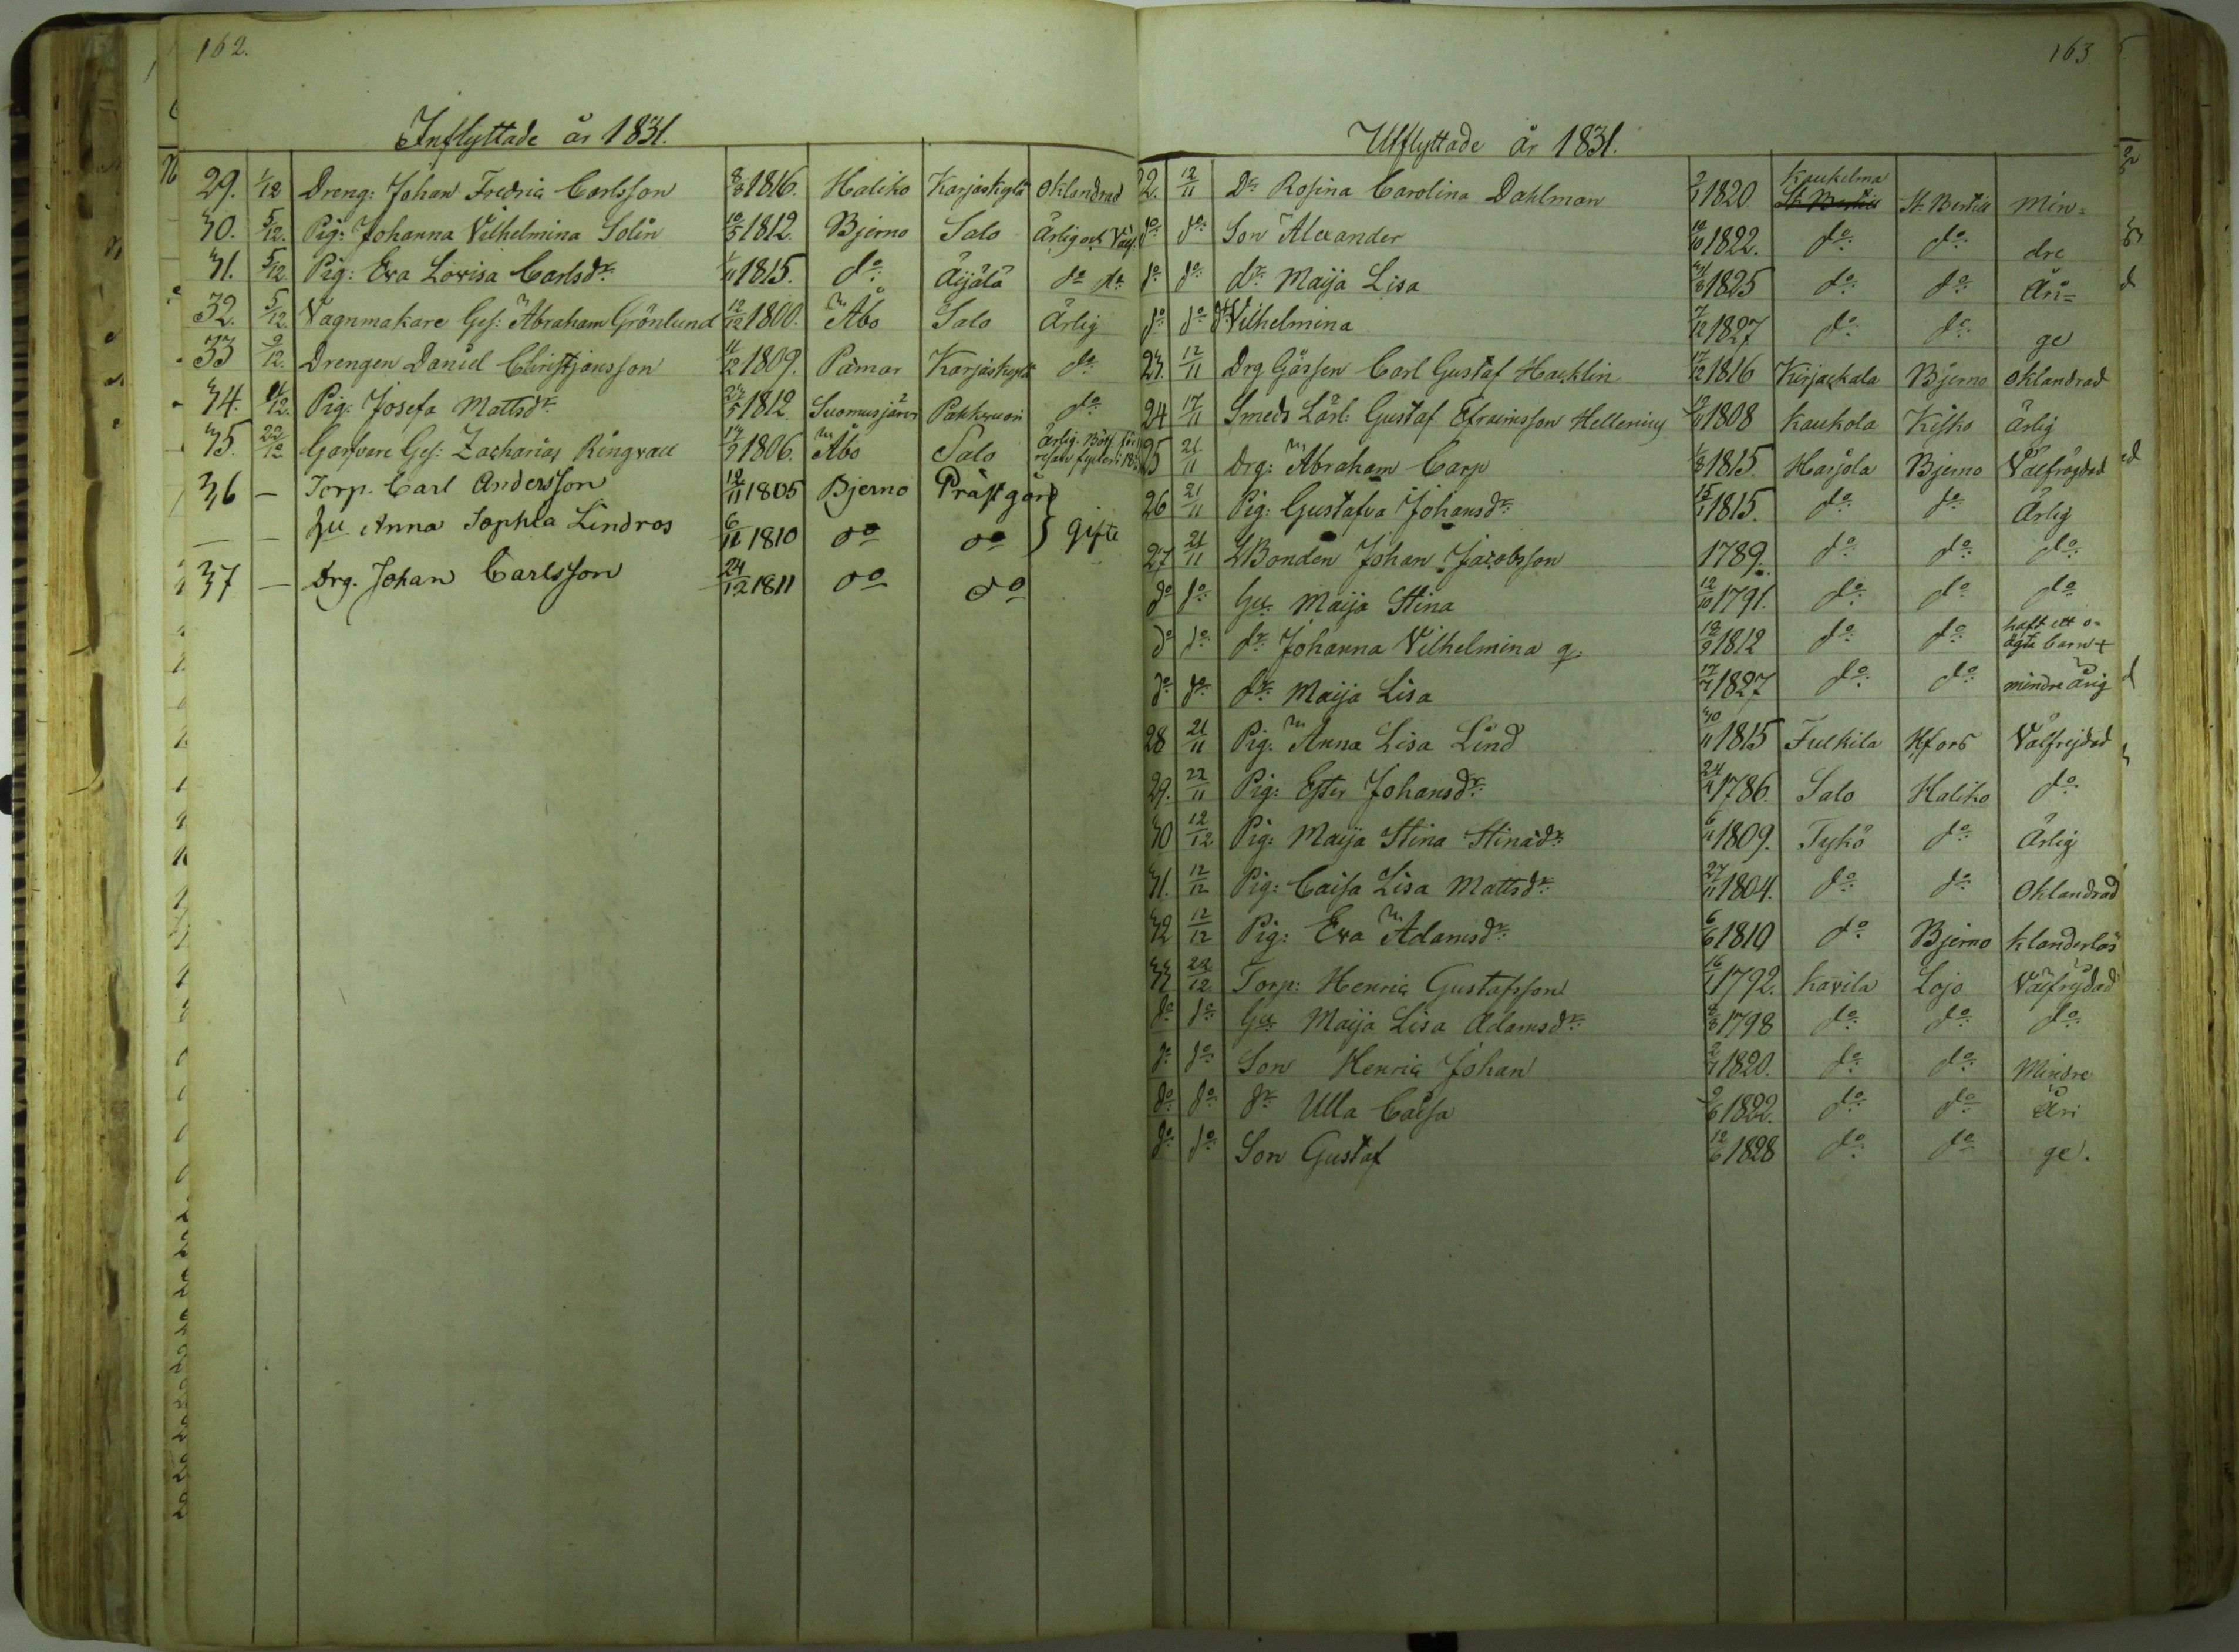 162.
Inflyttade år 1831.
29. 1/12 Dreng: Johan Fredric Carlsson 8/3 1816. Haliko Karjaskylä Oklandrad
30. 5/12. Pig: Johanna Vilhelmina Solin 10/5 1812. Bjerno Salo Ärlig och Välf.
31. 5/12 Pig: Eva Lovisa Carlsdr. 1/11 1815. do: Äijälä do do
32. 5/12. Vagnmakare Ges: Abraham Grönlund 12/12 1800. Åbo Salo Ärlig
33 9/12. Drengen Daniel Christjansson 11/12 1809. Pämar Karjaskylä do
34. 12. Pig: Josefa Mattsdr. 27/5 1812 Suomusjärvi Pakkvuori do:
35. 22/12 Garfvare Ges: Zacharias Ringvall 17/9 1806. Åbo Salo Ärlig. Bött för
36 — Torp. Carl Andersson 12/11 1805 Bjerno Prästgård
— — hu Anna Sophia Lindros 6/11 1810 do do } gifte
37 — Drg. Johan Carlsson 24/12 1811 do do
163
Utflyttade år 1831.
22. 12/11 Dr. Rosina Carolina Dahlman 2/1 1820 Kaukelma St. Bertill St. Bertill Min=
do do: Son Alexander 12/10 1822. do: do: dre
do do: dr. Maija Lisa 31/3 1825 do: do: Åri=
do do: dr. Vilhelmina 7/12 1827 do: do: ge
23. 12/11 Drg Gåssen Carl Gustaf Hacklin 17/12 1816 Kirjackala Bjerno Oklandrad
24 17/11 Smeds Lärl: Gustaf Efraimsson Hellenius 12/11 1808 Kaukola Kisko Ärlig
25 21/11 Drg: Abraham Carp 1/8 1815. Harjola Bjerno Välfrägdad
26 21/11 Pig: Gustafva Johansdr. 15/1 1815. do: do: Ärlig
27 21/11 LBonden Johan Jacobsson 1789. do: do: do:
do do: Hu. Maija Stina 12/10 1791. do: do do
do do: dr. Johanna Vilhelmina q. 18/9 1812 do: do: haft ett o-
ägta barn +
do do: dr. Maija Lisa 17/7 1827 do: do: mindre årig
28 21/11 Pig: Anna Lisa Lind 30/11 1815 Fulkila Hfors Välfrejdad
29. 22/11 Pig: Ester Johansdr. 24/2 1786. Salo Haliko do
30 12/12 Pig: Maija Stina Stinasdr. 6/11 1809. Tykö do: Ärlig
31. 12/12 Pig: Caisa Lisa Mattsdr. 27/11 1804. do: do: Oklandrad
32 12/12 Pig: Eva Adamsdr. 6/6 1810 do: Bjerno klanderlös
33 22/12. Torp: Henric Gustafsson 16/1 1792. Kavila Lojo Välfrejdad
do do: Hu. Maija Lisa Adamsdr. 2/3 1798 do: do: do:
do do: Son Henric Johan 2/7 1820. do: do: Mindre
do do: dr. Ulla Caisa 9/6 1822. do: do Åri
do do: Son Gustaf 12/6 1828 do: do ge.